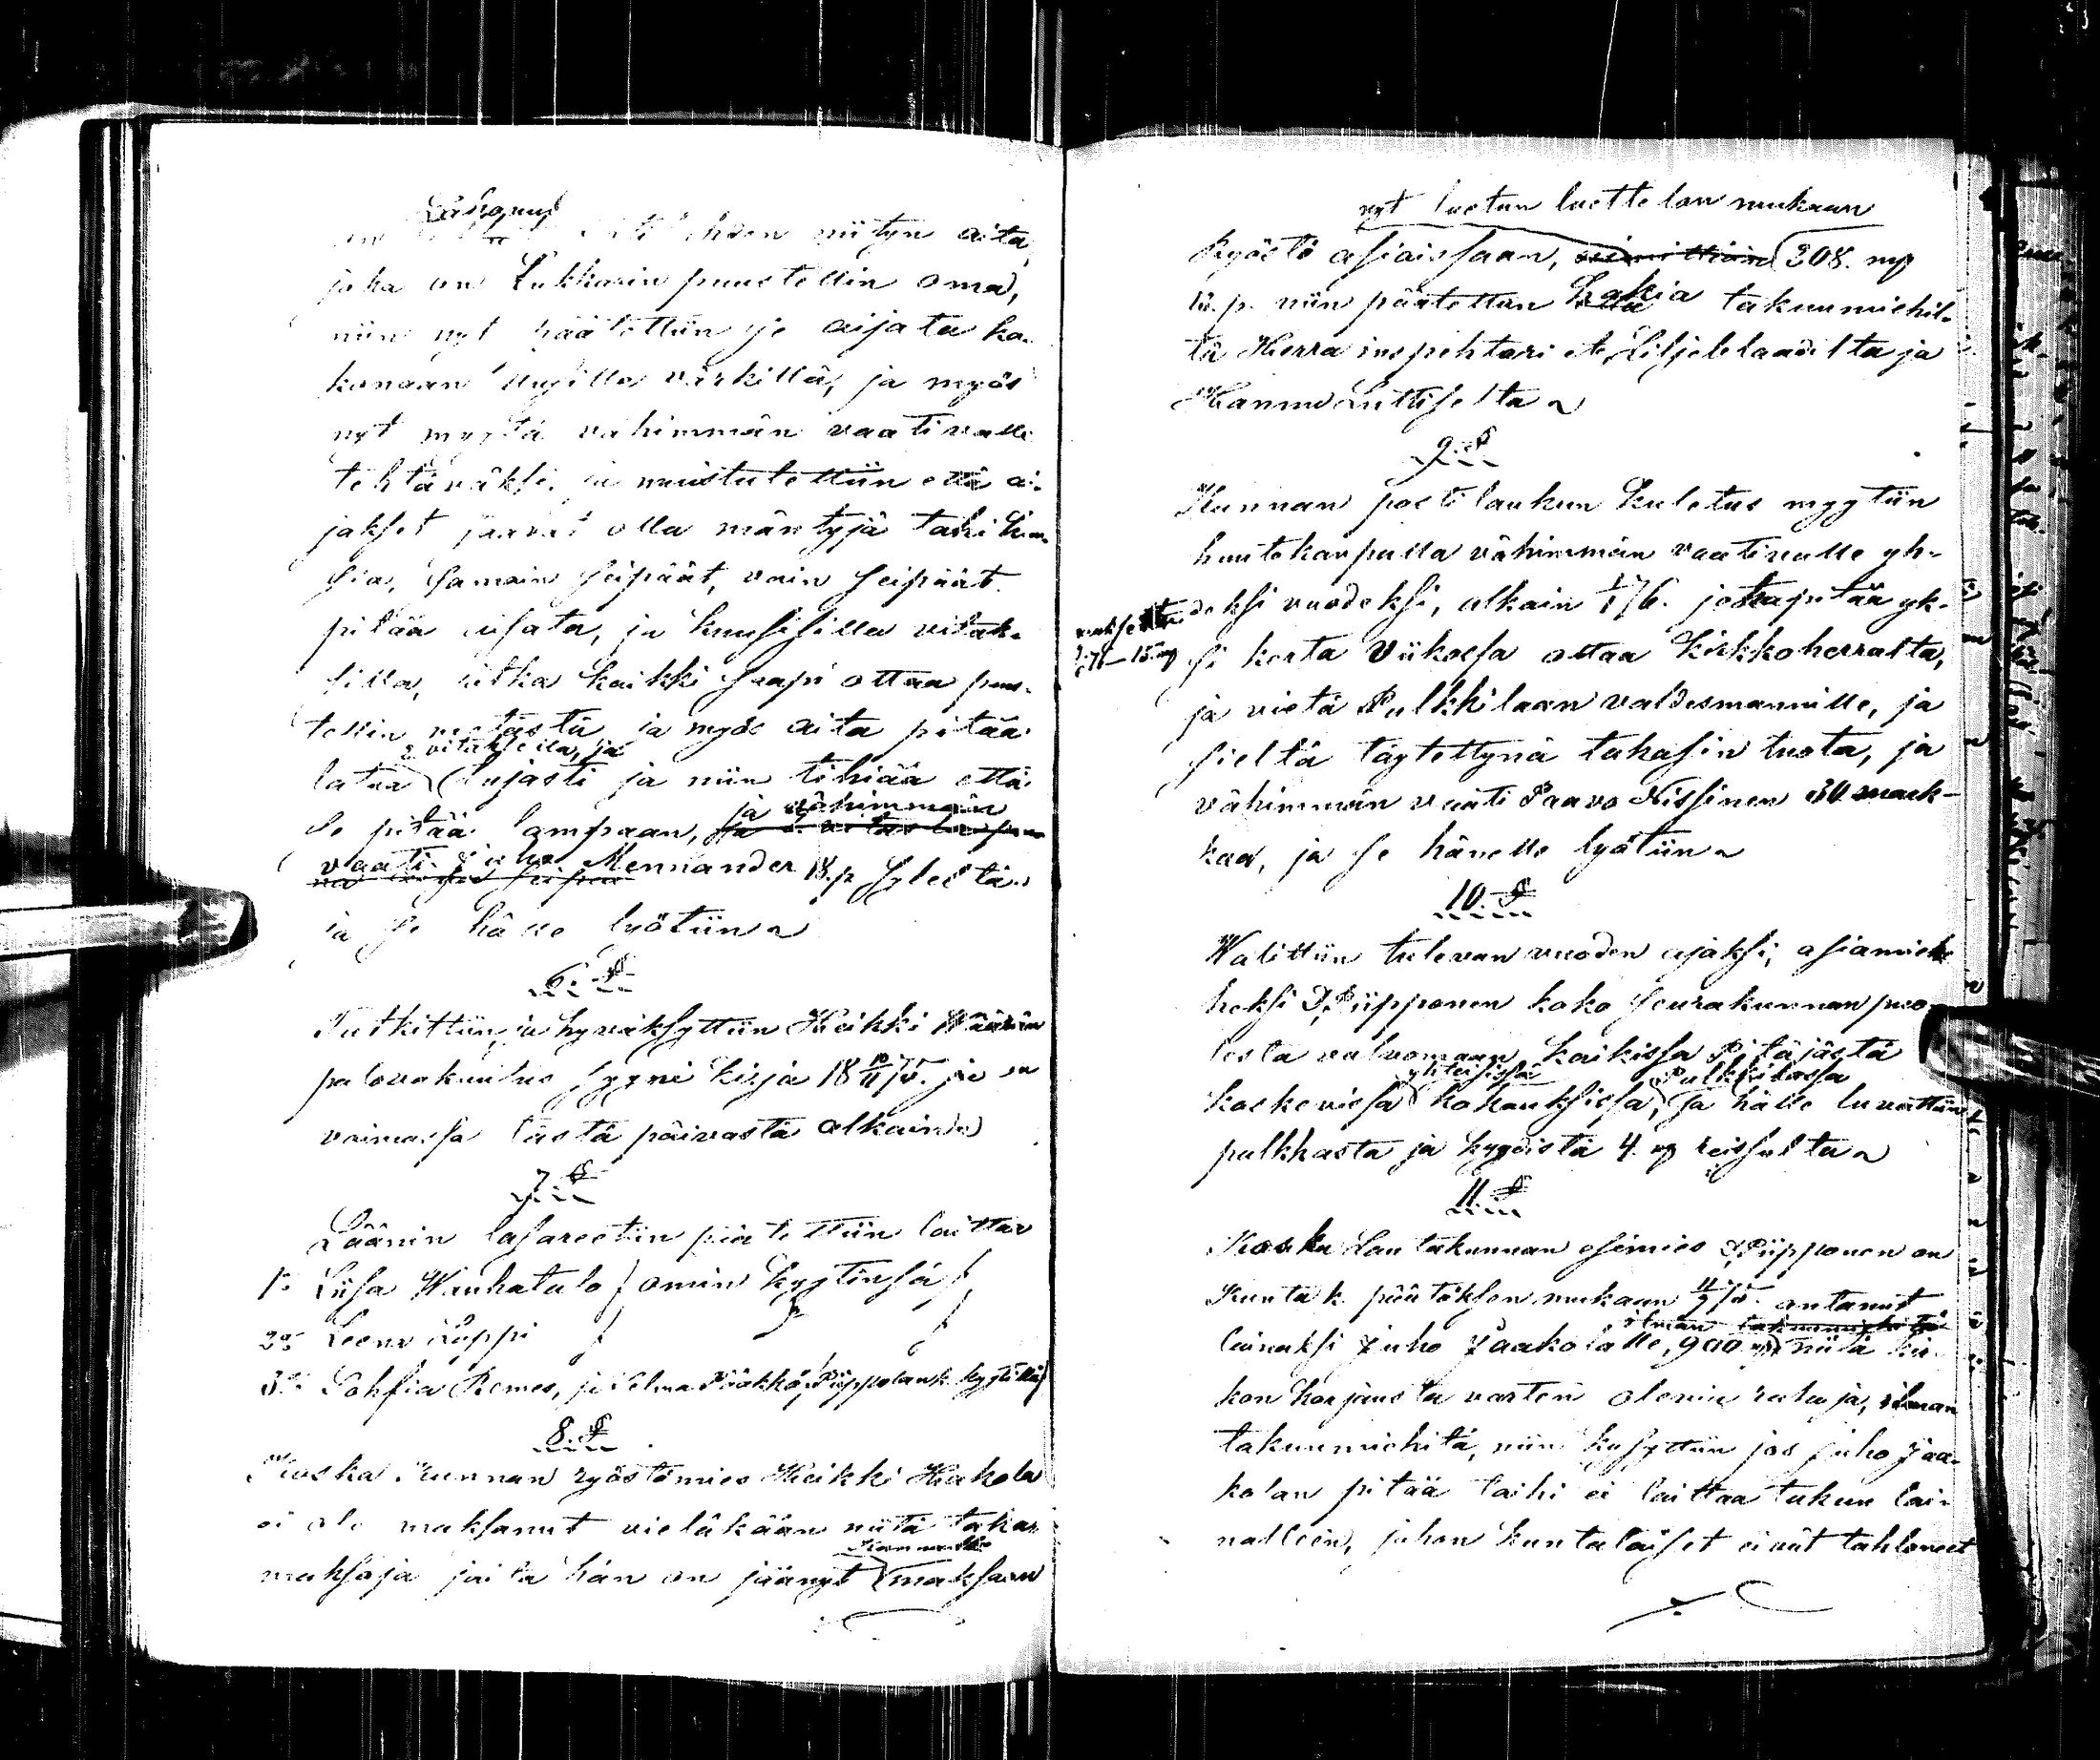 niityn aita,
joka on Lukkarin puustellin oma,
niin nyt päätettiin se aijata ko-
konaan uudilla värkillä, ja myös
nyt myytä vähimmän vaativalle
tehtäväksi, ja muistutettiin että ai-
jakset pitävät olla mäntyjä tahi kuu-
sia, samoin seipäät, vain seipäät
pitää, ja kuusisilla vitak-
silla, jotka kaikki saapi ottaa puus-
tellin metästä ja myös aita pitää
2 vitaksella, ja
latua lujasti ja niin tihiää että
se pitää lampaan, ja vähimmän
vaati Juho Mennander 18 p sylestä
ja se hälle lyötiin
6. §
Tutkittiin ja hyväksyttiin Heikki
palovakuutus syyni kirja 18 10/11 75. ja on
voimassa tästä päivästä alkain
7. §
Läänin lasareetiin päätettiin laittaa
1o Liisa Wanhatalo omin kyytinsä
2o Leena Lappi
3o Sohfia Remes, ja Selma Piippolan k. kyytillä
8. §
Koska Kunnan ryöstömies Heikki Hakola
ei ole maksanut vieläkään niitä takas
Kunnalle
maksoja joita hän on jäänyt maksaan
nyt luetun luettelon mukaan
Ryöstö asioissaan, 308. mp
12. p. niin päätettiin hakia takuumiehil-
tä Herra inspehtori Liljebladilta ja
Hannu Luttiselta
9. §
Kunnan posti laukun kuletus myytiin
huutokaupalla vähimmän vaativalle yh-
deksi vuodeksi, alkain 1/1 76. jotka pitää yk-
si kerta viikossa ottaa Kirkkoherralta,
ja vietä Pulkkilaan valdesmannille, ja
sieltä täytettynä takasin tuota, ja
vähimmän vaati Paavo Nissinen 30 mark-
kaa, ja se hänelle lyötiin
10. §
Walittiin tulevan vuoden ajaksi, asiamie-
heksi J. Piipponen koko seurakunnan puo-
lesta valvomaan kaikissa Pitäjästä
yhteisissä Pulkkilassa
koskevissa kokouksissa, ja hälle luvattiin
palkkasta ja kyydistä 4. mp reissulta
11. §
Koska Lautakunnan esimies J. Piipponen on
Kunta k. päätöksen mukaan 11/9 75. antanut
lainaksi Juho Jaakolalle, 900 mp niitä kir-
kon korjausta varten olevia rahoja, ilman
takuumiehitä, niin kysyttiin jos Juho Jaa-
kolan pitää taihi ei laittaa takuu lai-
nalleen, johon kuntalaiset eivät tahtoneet